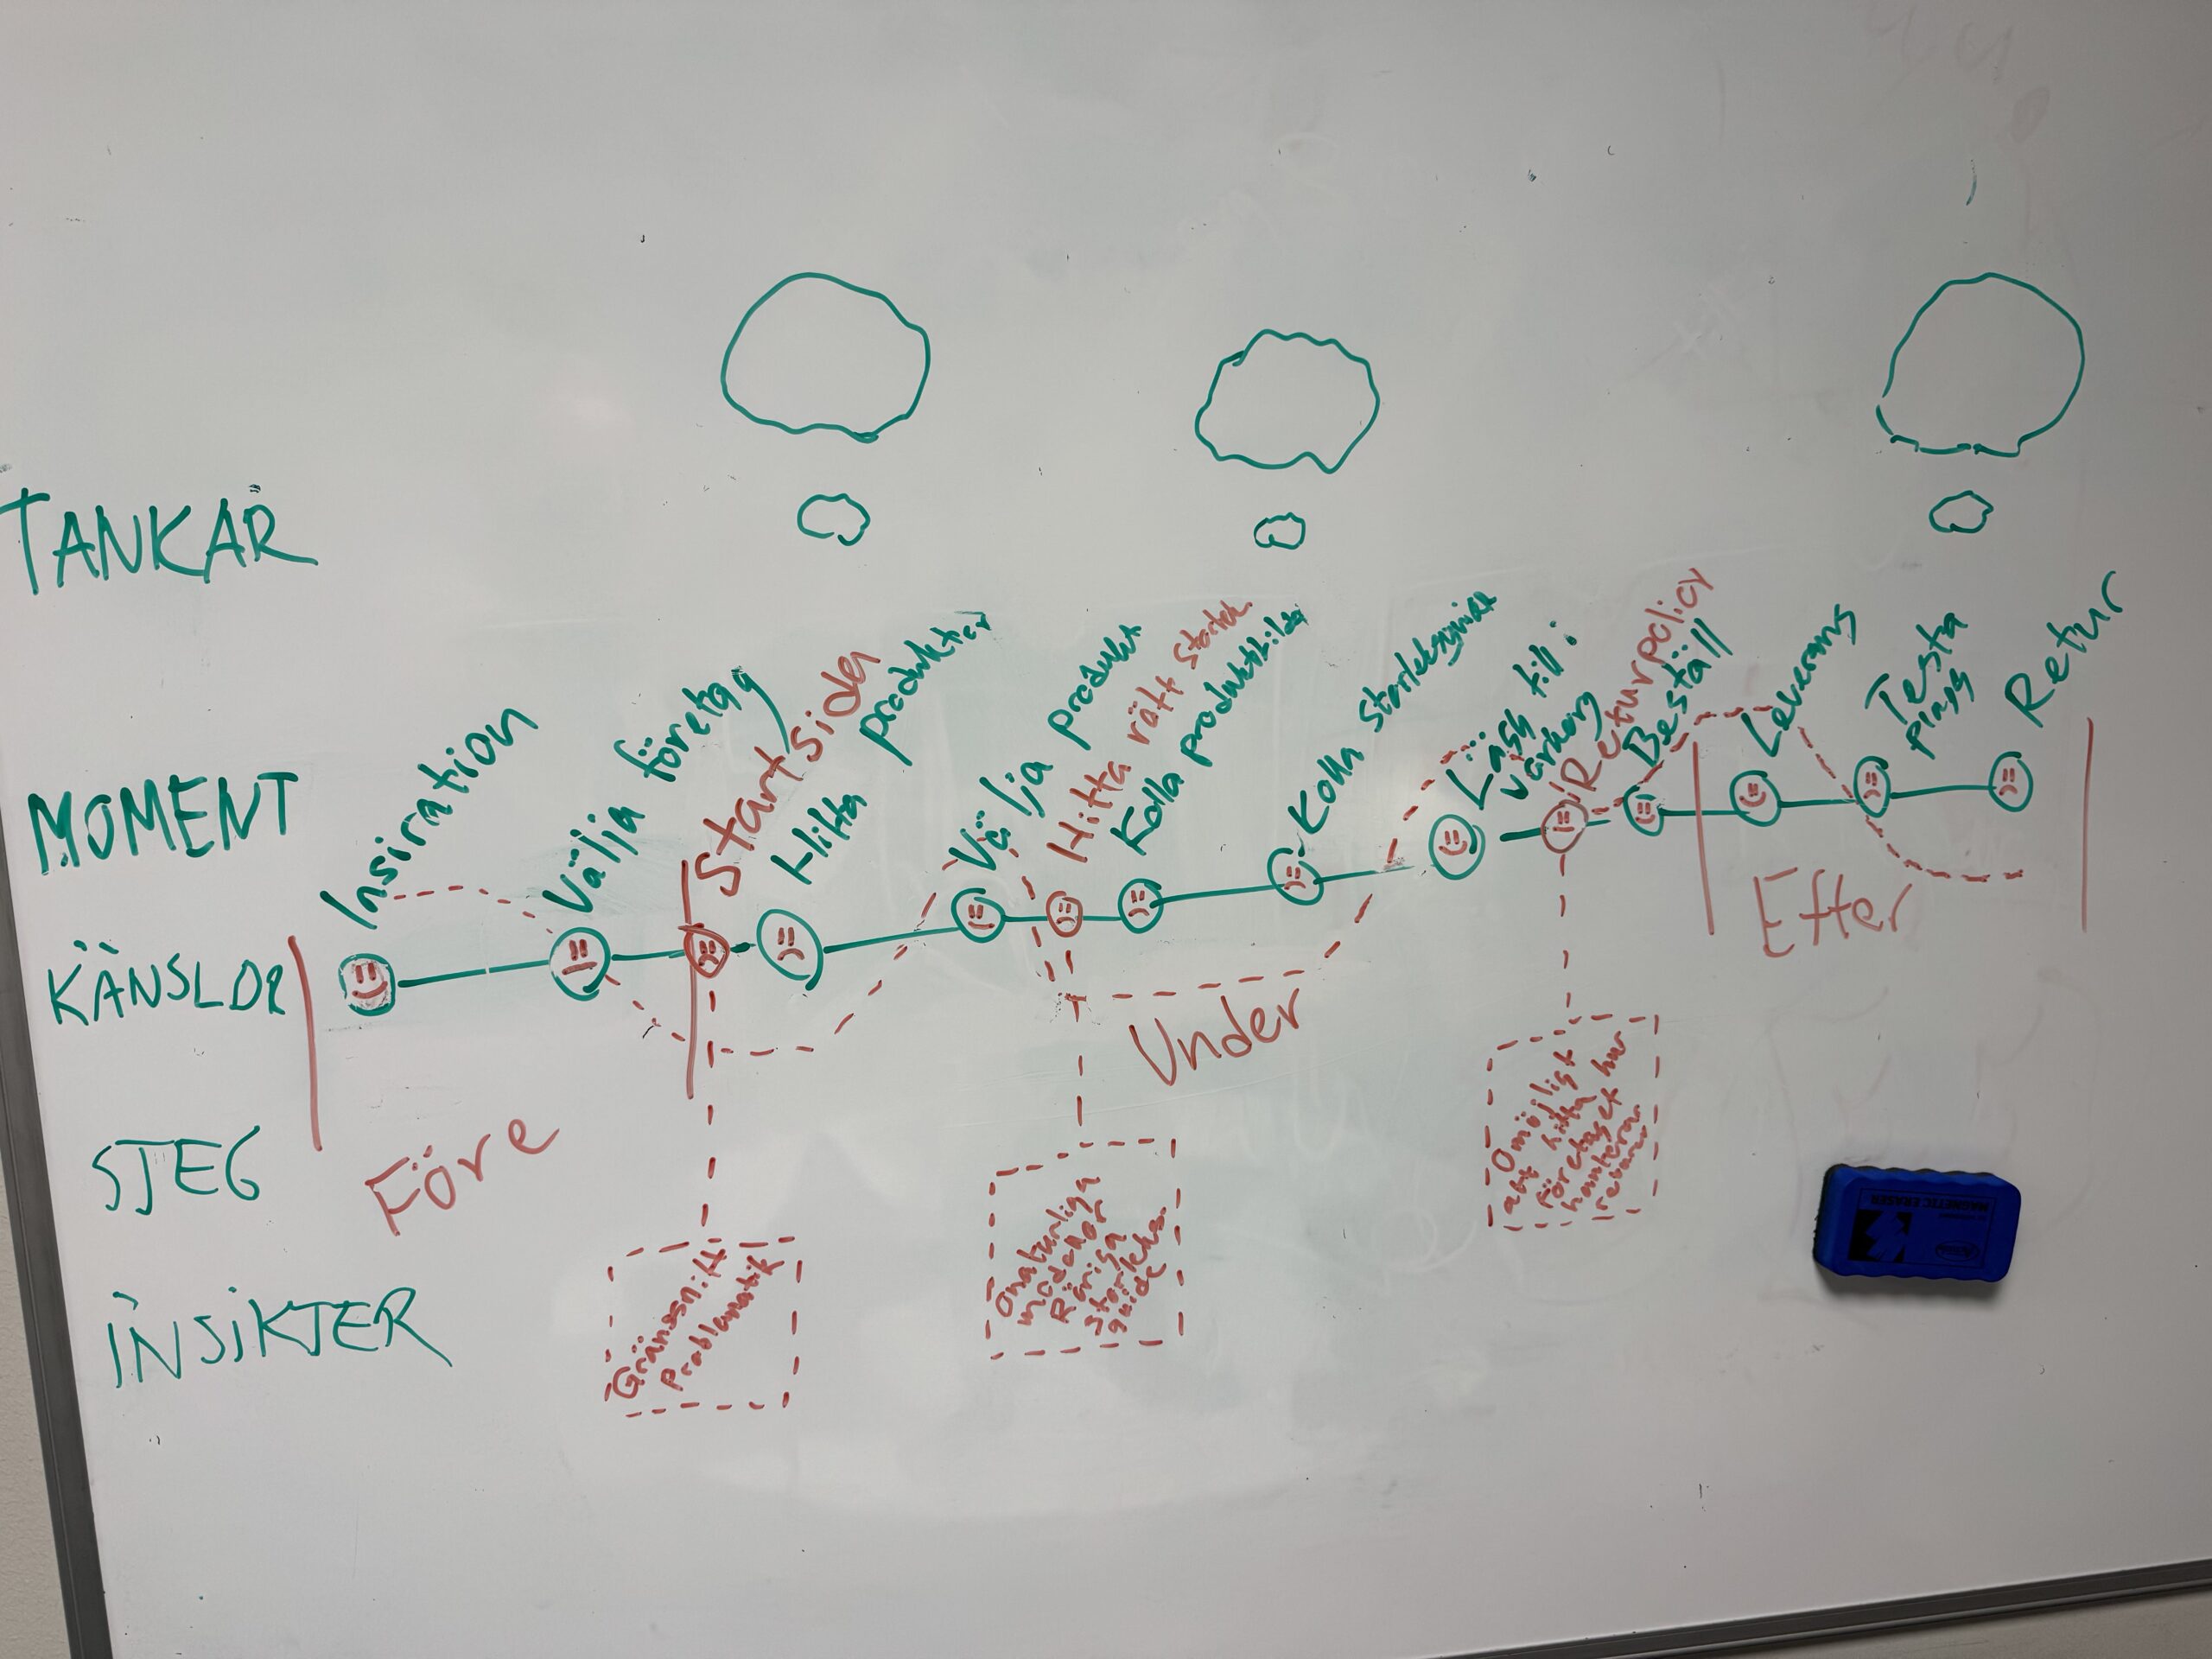 TANKAR
MOMENT
KÄNSLOR
STEG
INSIKTER
Insiration
Välja företag
Startsidan
Hitta produkter
Välja produkt
Hitta rätt storlek
Kolla produktbilda
Kolla storleksguide
Lägg till i
varkorg
Returpolicy
Beställ
Leverans
Testa
plagg
Retur
Före
Under
Efter
Gränssnitt
Problematik
Onaturliga
modeller
Röriga
Storleks
guide
Omöjligt
att hitta
företaget hur
hantera
returer
MAGNETIC ERASER